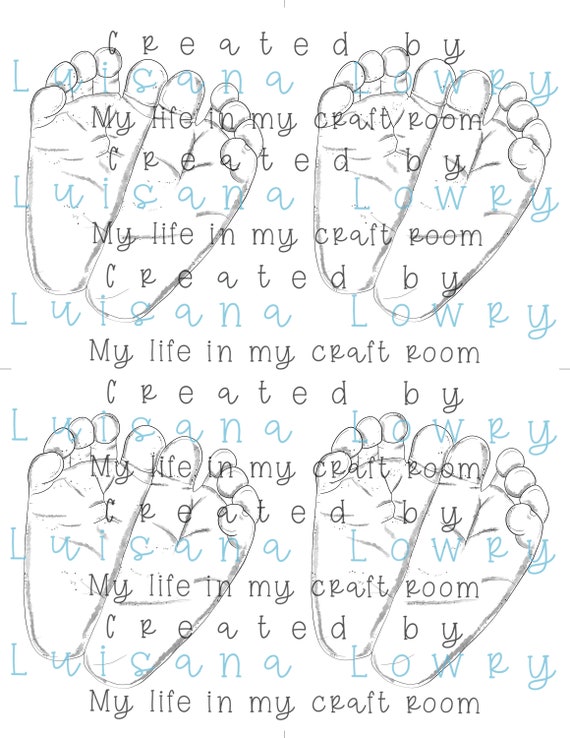 Created by
Luisana Lowry
My life in my craft room
Created by
Luisana Lowry
My life in my craft room
Created by
Luisana Lowry
My life in my craft room
Created by
Luisana Lowry
My life in my craft room
Created by
Luisana Lowry
My life in my craft room
Created by
Luisana Lowry
My life in my craft room